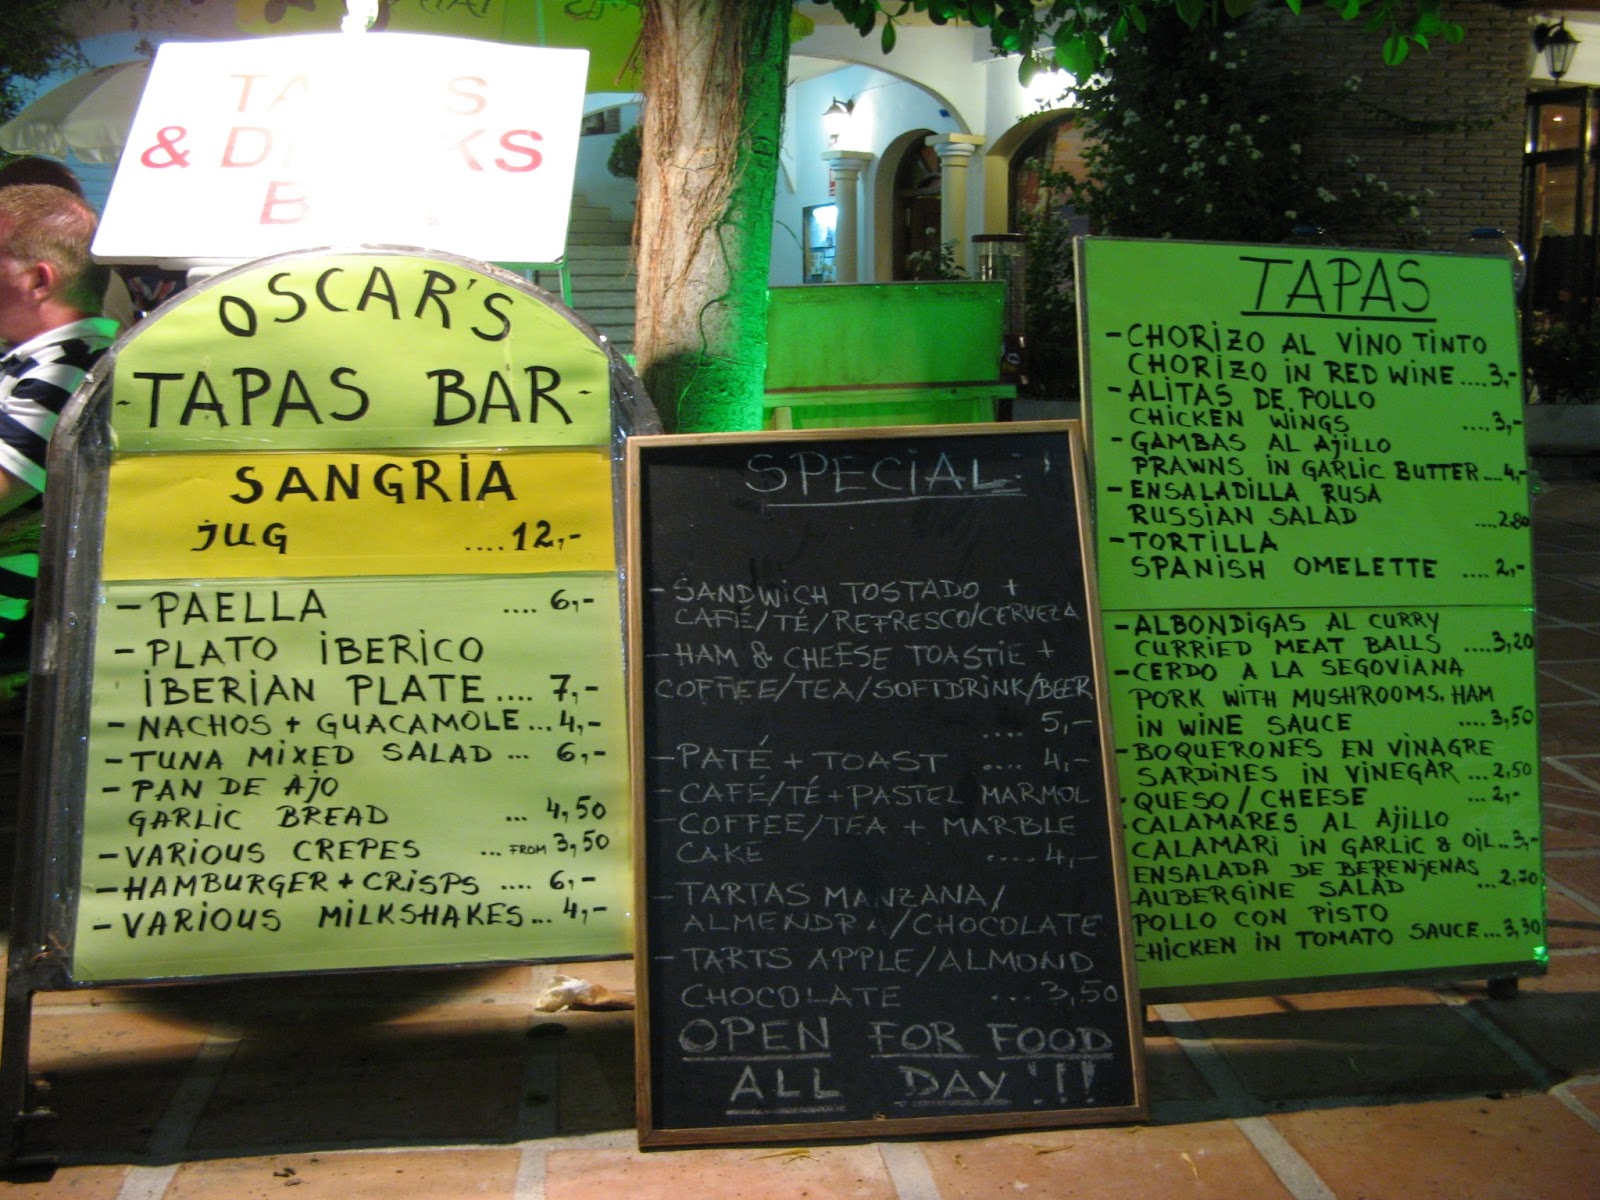 & DRINKS
OSCAR'S
- TAPAS BAR -
SANGRIA
JUG .... 12,-
- PAELLA .... 6,-
- PLATO IBERICO
IBERIAN PLATE .... 7,-
- NACHOS + GUACAMOLE ... 4,-
- TUNA MIXED SALAD ... 6,-
- PAN DE AJO
GARLIC BREAD ... 4,50
- VARIOUS CREPES ... FROM 3,50
- HAMBURGER + CRISPS .... 6,-
- VARIOUS MILKSHAKES ... 4,-
SPECIAL
- SANDWICH TOSTADO +
CAFÉ/TÉ/REFRESCO/CERVEZA
- HAM & CHEESE TOASTIE +
COFFEE/TEA/SOFTDRINK/BEER
.... 5,-
- PATÉ + TOAST .... 4,-
- CAFÉ/TÉ + PASTEL MARMOL
- COFFEE/TEA + MARBLE
CAKE .... 4,-
- TARTAS MANZANA/
ALMENDRA/CHOCOLATE
- TARTS APPLE/ALMOND
CHOCOLATE ... 3,50
OPEN FOR FOOD
ALL DAY !!!
TAPAS
- CHORIZO AL VINO TINTO
CHORIZO IN RED WINE .... 3,-
- ALITAS DE POLLO
CHICKEN WINGS .... 3,-
- GAMBAS AL AJILLO
PRAWNS IN GARLIC BUTTER .... 4,-
- ENSALADILLA RUSA
RUSSIAN SALAD .... 2.80
- TORTILLA
SPANISH OMELETTE .... 2,-
- ALBONDIGAS AL CURRY
CURRIED MEAT BALLS .... 3,20
- CERDO A LA SEGOVIANA
PORK WITH MUSHROOMS, HAM
IN WINE SAUCE .... 3,50
- BOQUERONES EN VINAGRE
SARDINES IN VINEGAR ... 2,50
- QUESO / CHEESE ... 2,-
- CALAMARES AL AJILLO
CALAMARI IN GARLIC & OIL .. 3,-
ENSALADA DE BERENJENAS
- AUBERGINE SALAD ... 2,70
POLLO CON PISTO
CHICKEN IN TOMATO SAUCE ... 3,30